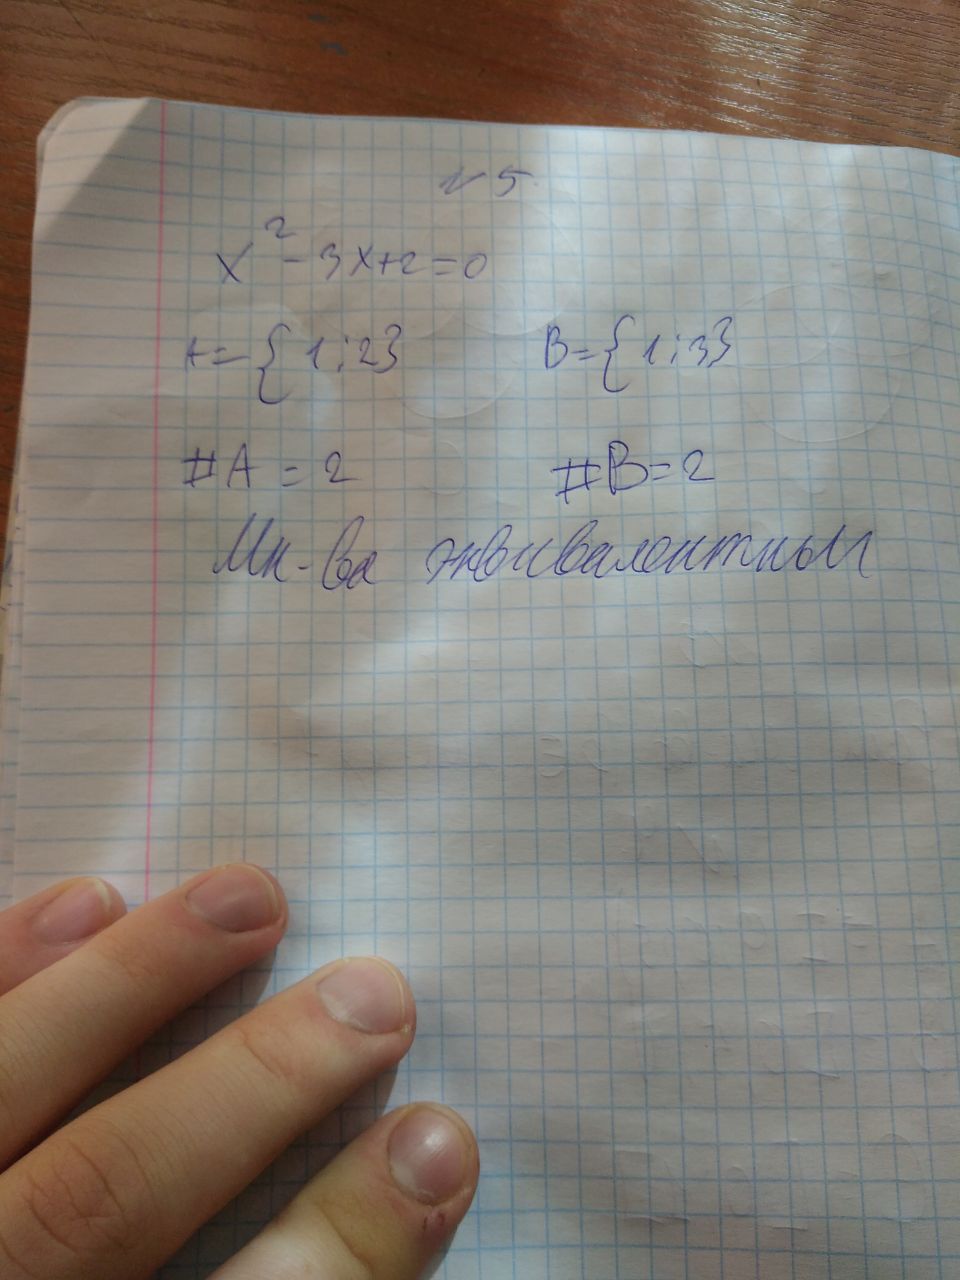 №5
x² - 3x+2=0
A = {1;2} B={1;3}
#A = 2 #B=2
Мн-ва эквивалентны